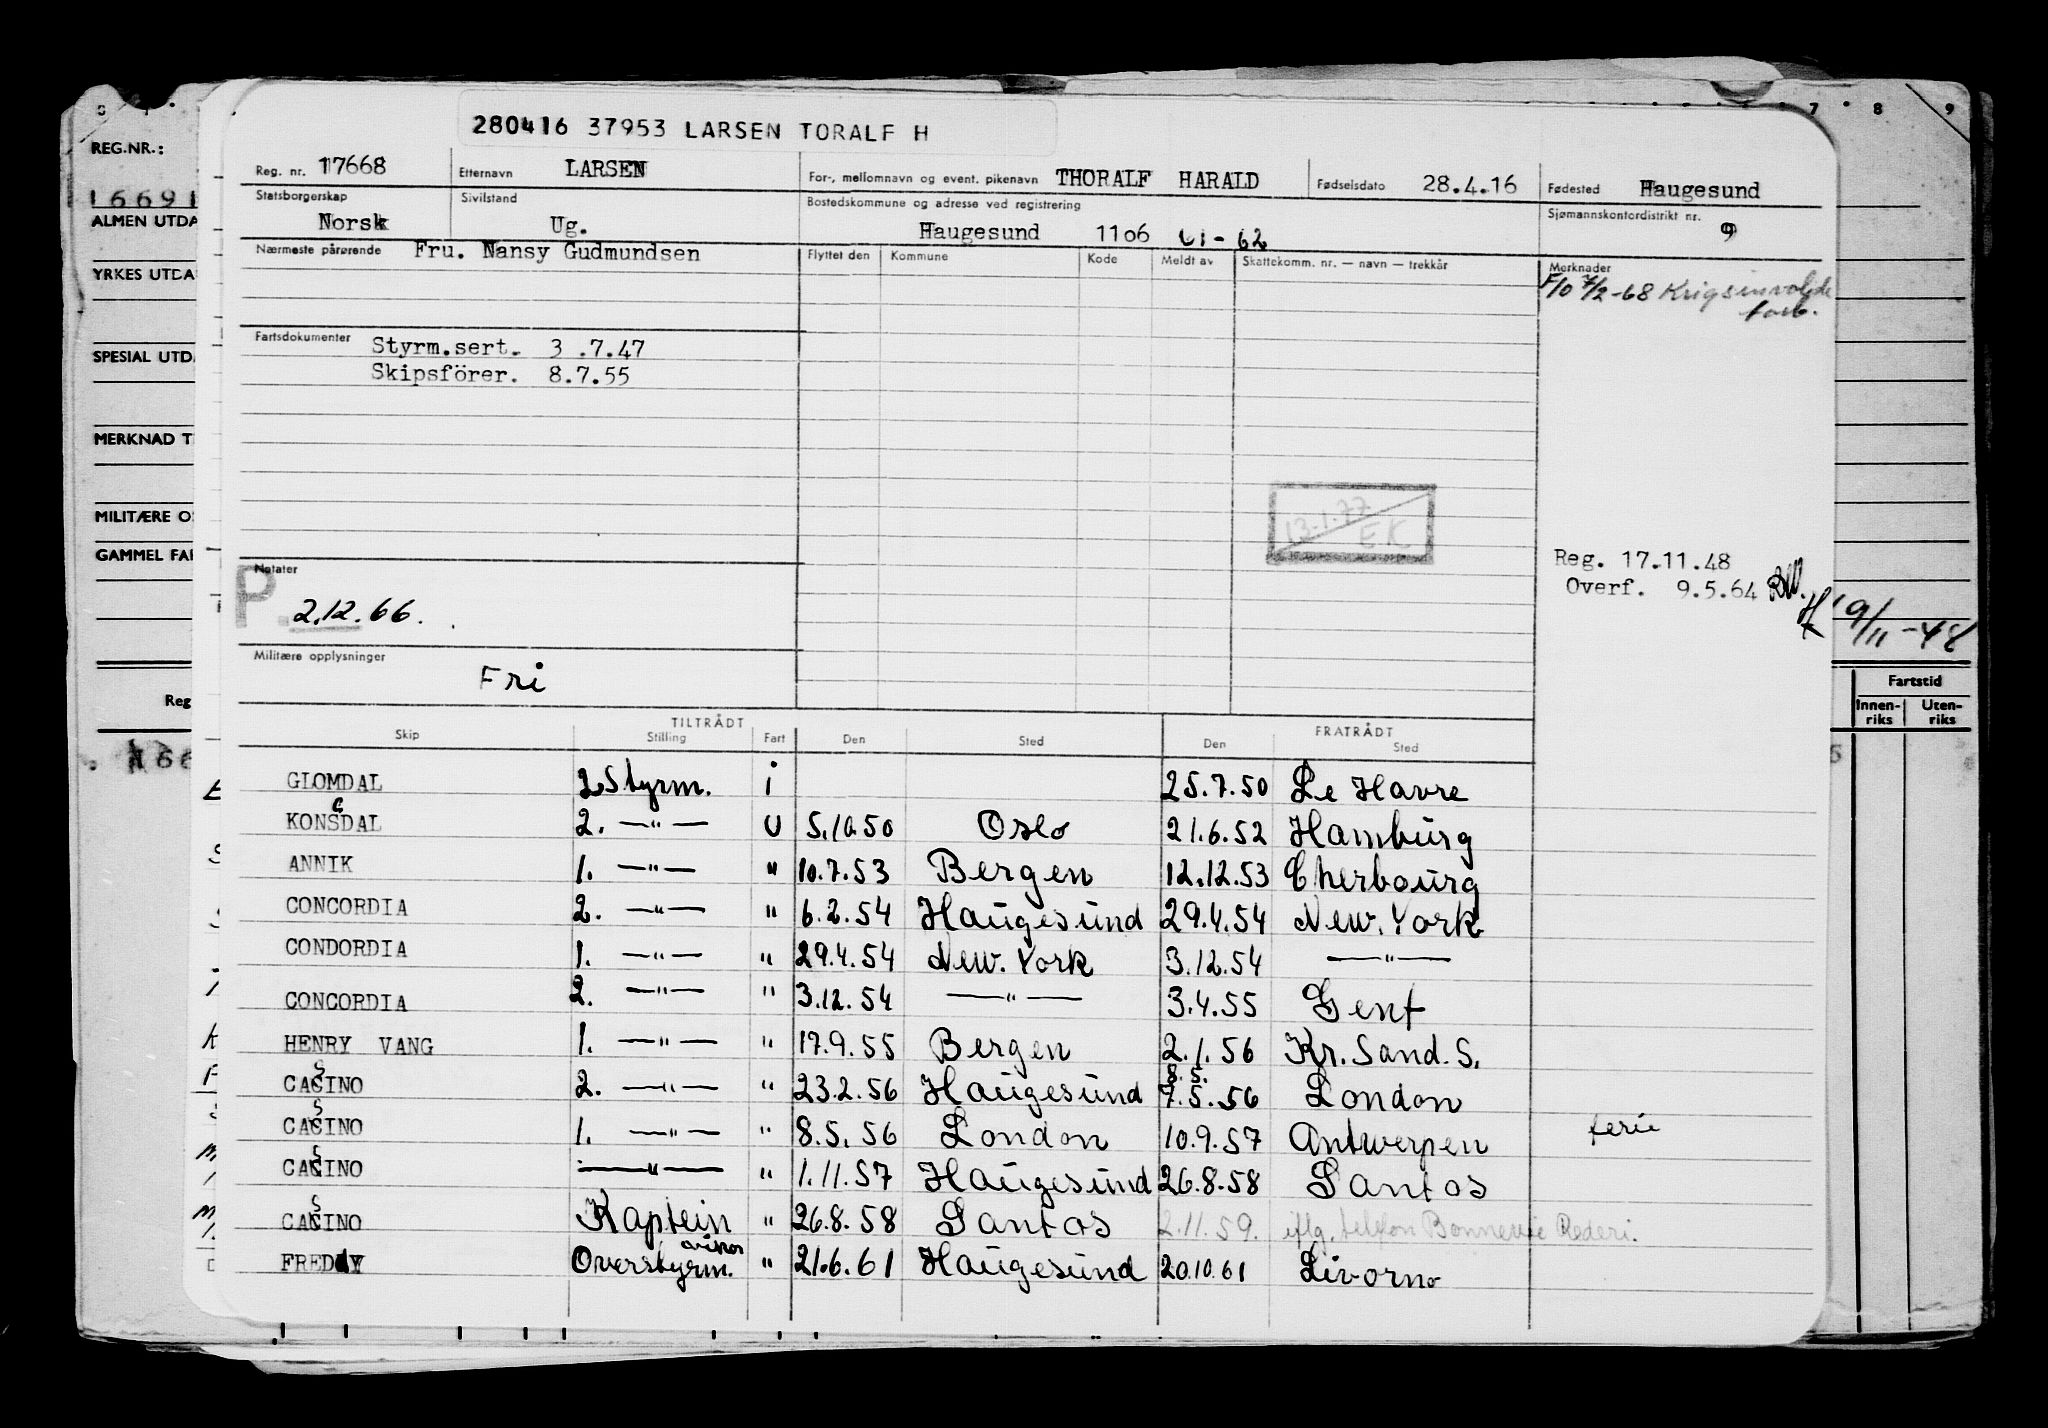 280416 37953 LARSEN TORALF H
Reg. nr. 17668 Etternavn LARSEN For-, mellomnavn og event. pikenavn THORALF HARALD Fødselsdato 28.4.16 Fødested Haugesund
Statsborgerskap Norsk Sivilstand Ug. Bostedskommune og adresse ved registrering Haugesund 1106 61-62 Sjømannskontordistrikt nr. 9
Nærmeste pårørende Fru. Nansy Gudmundsen Flyttet den Kommune Kode Meldt av Skattekomm. nr. — navn — trekkår Merknader
F/O 7/2-68 Krigsinvalide
Fartsdokumenter Styrm.sert. 3 .7.47
Skipsförer. 8.7.55
13.1.77
EK
Reg. 17.11.48
Overf. 9.5.64
Notater
P 2.12.66.
Militære opplysninger
Fri
TILTRÅDT FRATRÅDT
Skip Stilling Fart Den Sted Den Sted
GLOMDAL 2 Styrm. i 25.7.50 Le Havre
G
KONSDAL 2. —"— U 5.10.50 Oslo 21.6.52 Hamburg
ANNIK 1. —"— " 10.7.53 Bergen 12.12.53 Cherbourg
CONCORDIA 2. —"— " 6.2.54 Haugesund 29.4.54 New. York
CONDORDIA 1. —"— " 29.4.54 New. York 3.12.54 —"—
CONCORDIA 2. —"— " 3.12.54 —"— 3.4.55 Gent
HENRY VANG 1. —"— " 17.9.55 Bergen 2.1.56 Kr. Sand. S.
S 8.5.
CASINO 2. —"— " 23.2.56 Haugesund 7.5.56 London
S
CASINO 1. —"— " 8.5.56 London 10.9.57 Antwerpen ferie
S
CASINO —"— " 1.11.57 Haugesund 26.8.58 Santos
S
CASINO Kaptein " 26.8.58 Santos 2.11.59. iflg. telefon Bonnevie Rederi.
FREDDY Overstyrm. " 21.6.61 Haugesund 20.10.61 Livorno
REG.NR.:
16691
ALMEN UTDA
YRKES UTDA
SPESIAL UTD
MERKNAD T
MILITÆRE O
GAMMEL FA
Reg
7 8 9
19/11-48
Fartstid
Innen-riks Uten-riks